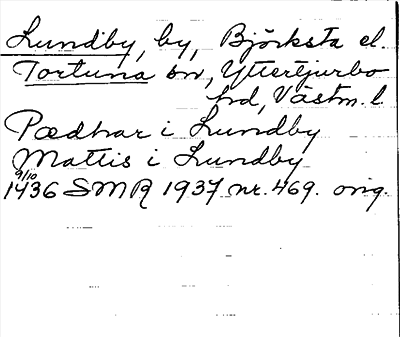 Lundby, by, Björksta el.
Tortuna sn, Yttertjurbo
hd, Västm. l.
Pædhar i Lundby
Mattis i Lundby
9/10
1436 SMR 1937 nr. 469. orig.